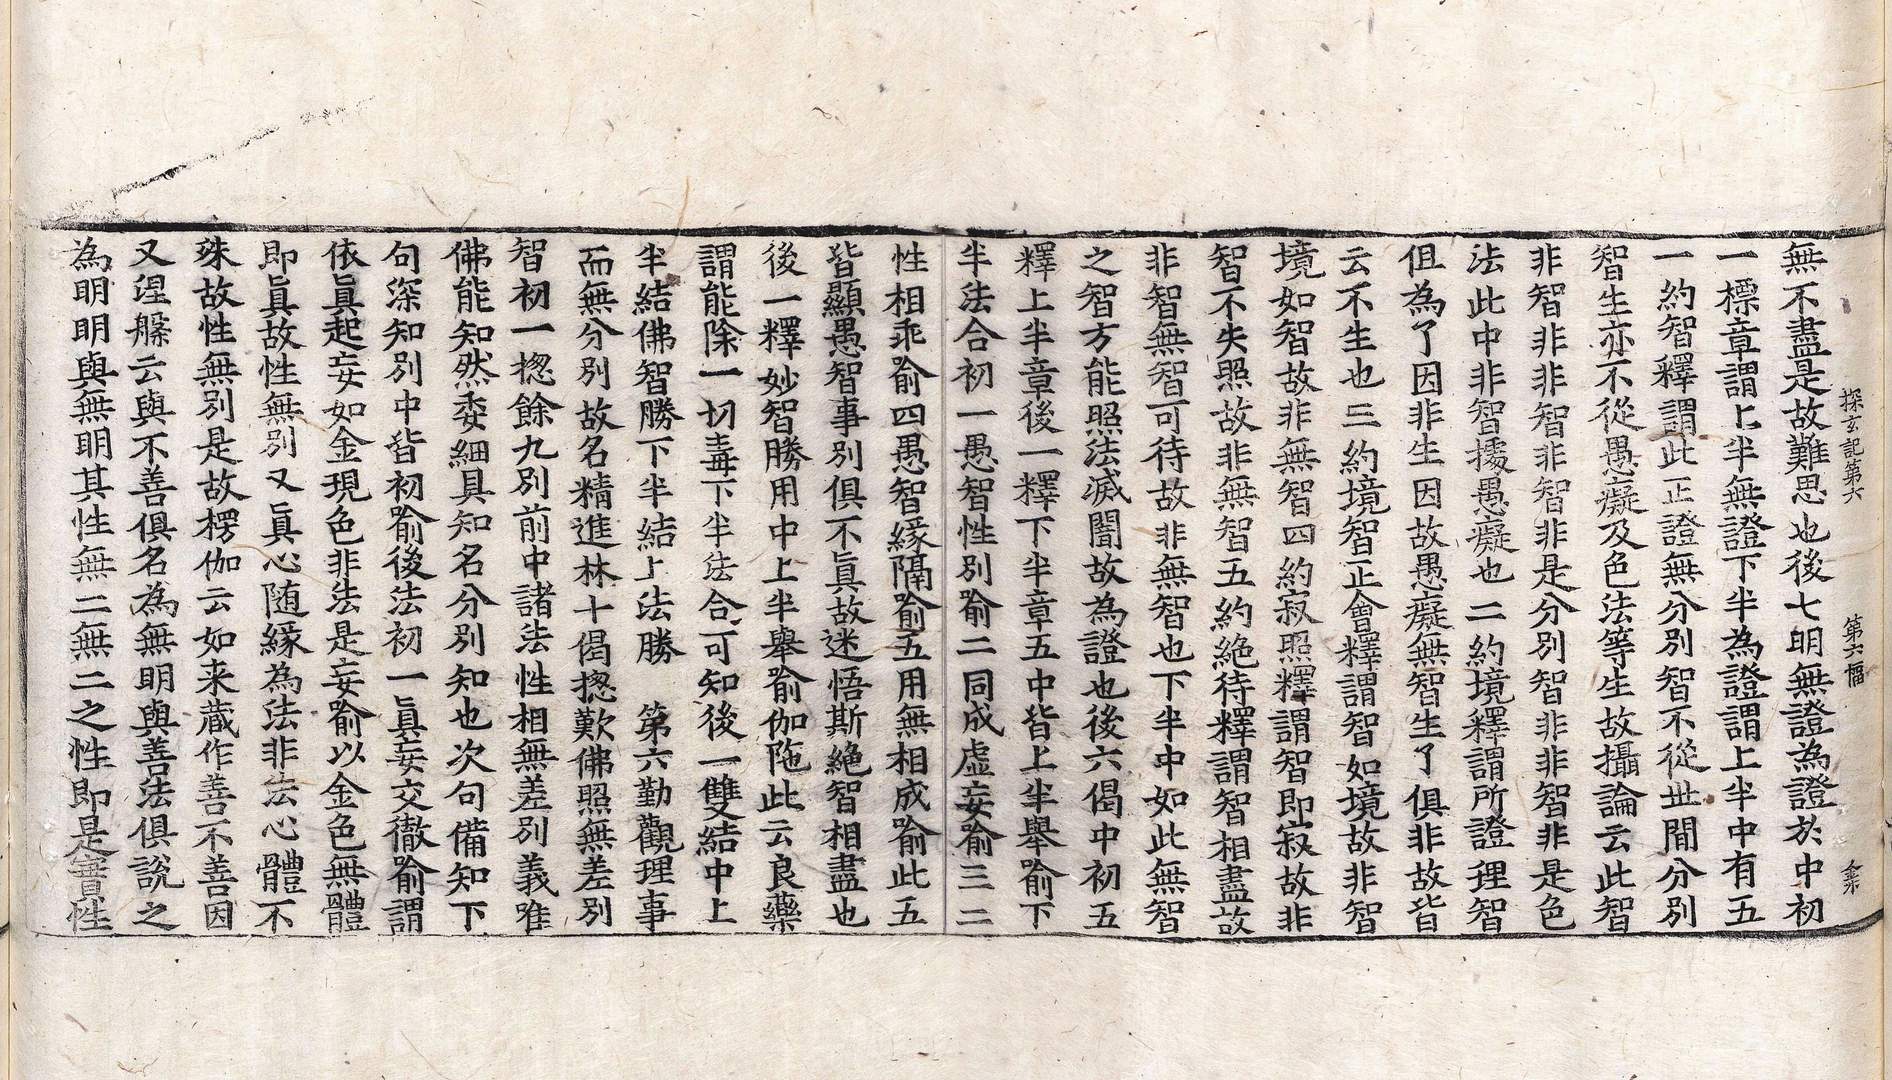 探玄記第六　第六幅　金
無不盡是故難思也後七明無證為證於中初
一標章謂上半無證下半為證謂上半中有五
一約智釋謂此正證無分別智不從世間分別
智生亦不從愚癡及色法等生故攝論云此智
非智非非智非智非是分別智非非智非是色
法此中非智攝愚癡也二約境釋謂所證理智
但為了因非生因故愚癡無智生了俱非故皆
云不生也三約境智正會釋謂智如境故非智
境如智故非無智四約寂照釋謂智即寂故非
智不失照故非無智五約絶待釋謂智相盡故
非智無智可待故非無智也下半中如此無智
之智方能照法滅闇故為證也後六偈中初五
釋上半章後一釋下半章五中皆上半舉喻下
半法合初一愚智性別喻二同成虛妄喻三二
性相乖喻四愚智緣隔喻五用無相成喻此五
皆顯愚智事別俱不真故迷悟斯絶智相盡也
後一釋妙智勝用中上半舉喻伽陁此云良藥
謂能除一切毒下半法合可知後一雙結中上
半結佛智勝下半結上法勝　第六勤觀理事
而無分別故名精進林十偈揔歎佛照無差別
智初一揔餘九別前中諸法性相無差別義唯
佛能知然委細具知名分別知也次句備知下
句深知別中皆初喻後法初一真妄交徹喻謂
依真起妄如金現色非法是妄喻以金色無體
即真故性無別又真心随緣為法非法心體不
殊故性無別是故楞伽云如来藏作善不善因
又涅槃云與不善俱名為無明與善法俱說之
為明明與無明其性無二無二之性即是實性